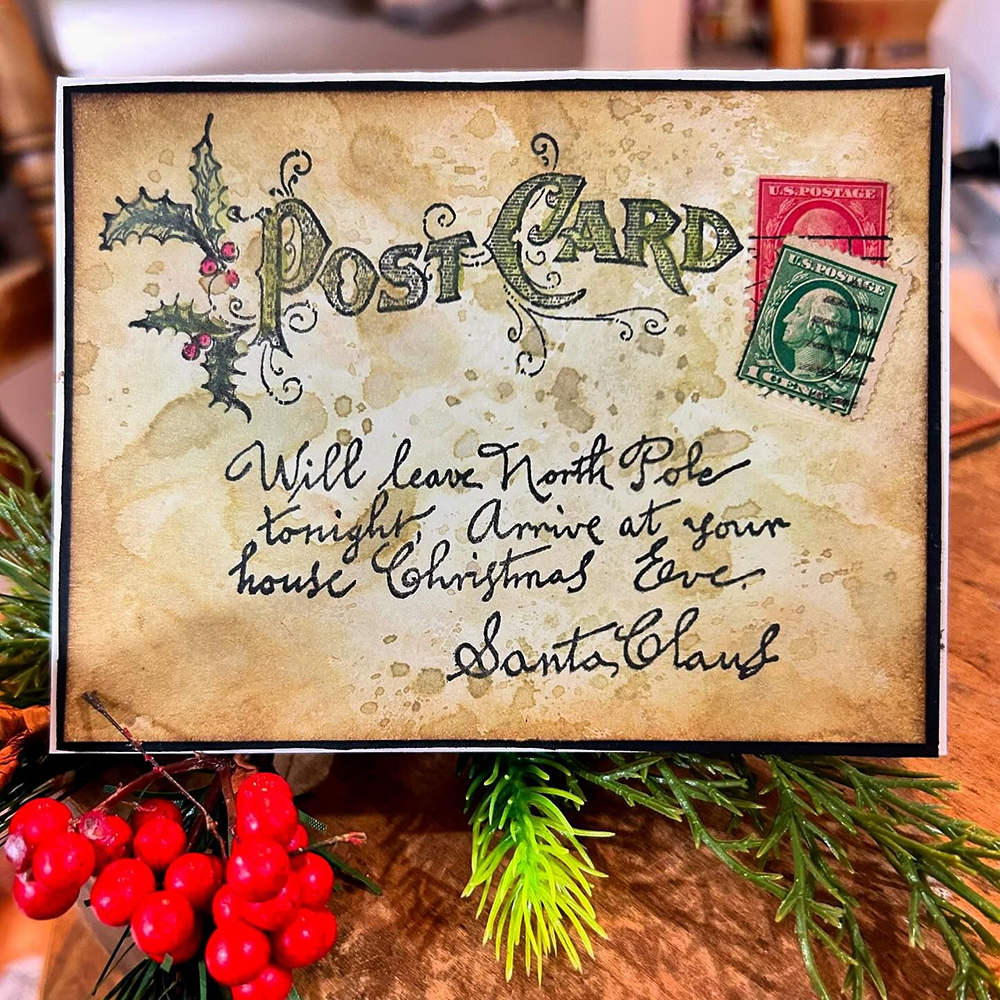 POST CARD
U.S. POSTAGE
U.S. POSTAGE
1 CENT
Will leave North Pole
tonight, Arrive at your
house Christmas Eve.
Santa Claus